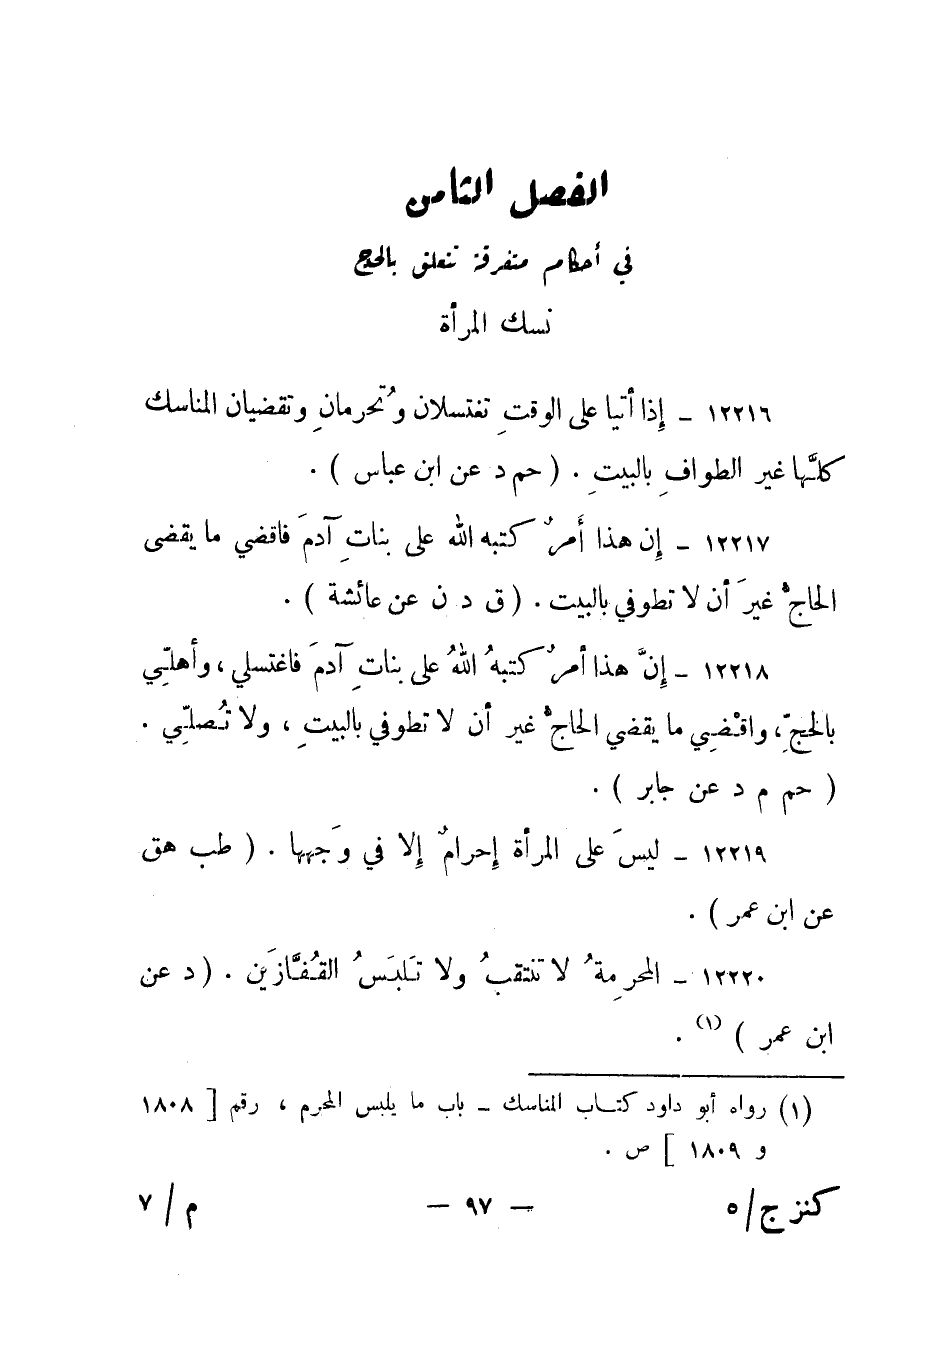 الفصل الثامن
في أحكام متفرقة تتعلق بالحج
نسك المرأة
١٢٢١٦ ـ إِذا أتيا على الوقتِ تغتسلان وتُحرمانِ وتقضيان المناسك
كلَّها غير الطوافِ بالبيتِ . ( حم د عن ابن عباس ) .
١٢٢١٧ ـ إِن هذا أَمرٌ كتبه الله على بناتِ آدمَ فاقضي ما يقضى
الحاجُّ غيرَ أن لا تطوفي بالبيت . ( ق د ن عن عائشة ) .
١٢٢١٨ ـ إِنَّ هذا أمرٌ كتبهُ اللهُ على بناتِ آدمَ فاغتسلي ، وأهلّي
بالحجِّ ، واقْضِي ما يقضي الحاجُّ غير أن لا تطوفي بالبيتِ ، ولا تُصلّي .
( حم م د عن جابر ) .
١٢٢١٩ ـ ليسَ على المرأة إِحرامٌ إِلا في وَجهها . ( طب هق
عن ابن عمر ) .
١٢٢٢٠ ـ المحرِمةُ لا تنتقبُ ولا تَلبَسُ القُفَّازَين . ( د عن
ابن عمر ) (١) .
(١) رواه أبو داود كتاب المناسك ـ باب ما يلبس المحرم ، رقم [ ١٨٠٨
و ١٨٠٩ ] ص .
كنز ج/٥ — ٩٧ — م/٧